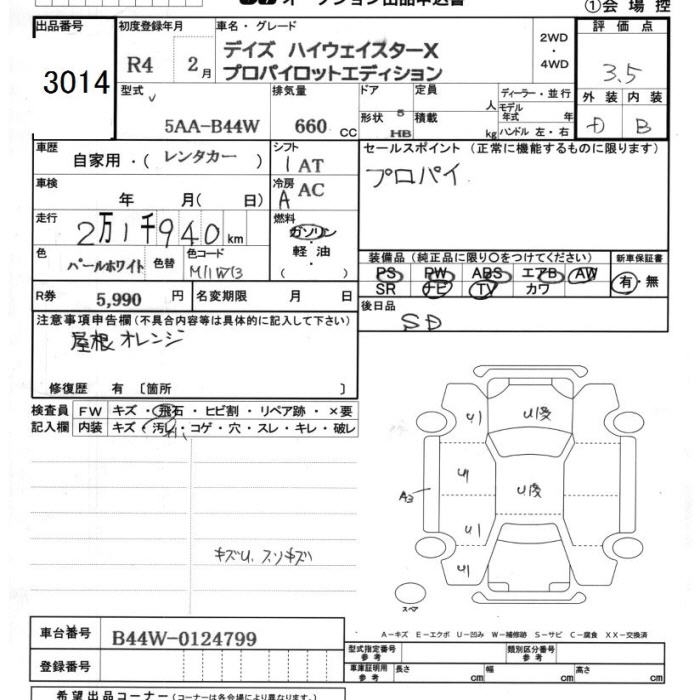 オークション出品申込書
①会場控
出品番号 初度登録年月 車名・グレード 評価点
3014 R4 2月 デイズ ハイウェイスターX
プロパイロットエディション 2WD・4WD 3.5
型式 排気量 ドア 定員 人 ディーラー・並行 外装 内装
5AA-B44W 660 CC 形状 5 HB 積載 kg モデル年式 年 ハンドル 左・右 D B
車歴 自家用・(レンタカー) シフト 1 AT セールスポイント (正常に機能するものに限ります)
プロパイ
車検 年 月(日) 冷房 A AC
走行 2万1千940km 燃料 ガソリン・軽油・( )
色 パールホワイト 色替 色コード M11W13
装備品(純正品に限り○をつけてください) 新車保証書
PS PW ABS エアB AW 有・無
SR ナビ TV カワ
R券 5,990 円 名変期限 月 日 後日品
SD
注意事項申告欄(不具合内容等は具体的に記入して下さい)
屋根オレンジ
修復歴 有 〔箇所 〕
検査員 FW キズ・飛石・ヒビ割・リペア跡・×要
記入欄 内装 キズ・汚れ・コゲ・穴・スレ・キレ・破レ
U1 U1優
U1 U1優
A3
U1
U1
キズU、スリキズ
スペア
A－キズ E－エクボ U－凹み W－補修跡 S－サビ C－腐食 XX－交換済
車台番号 B44W-0124799
型式指定番号 参考 類別区分番号 参考
登録番号
車庫証明用 参考 長さ cm 幅 cm 高さ cm
希望出品コーナー(コーナーは各会場により異なります)